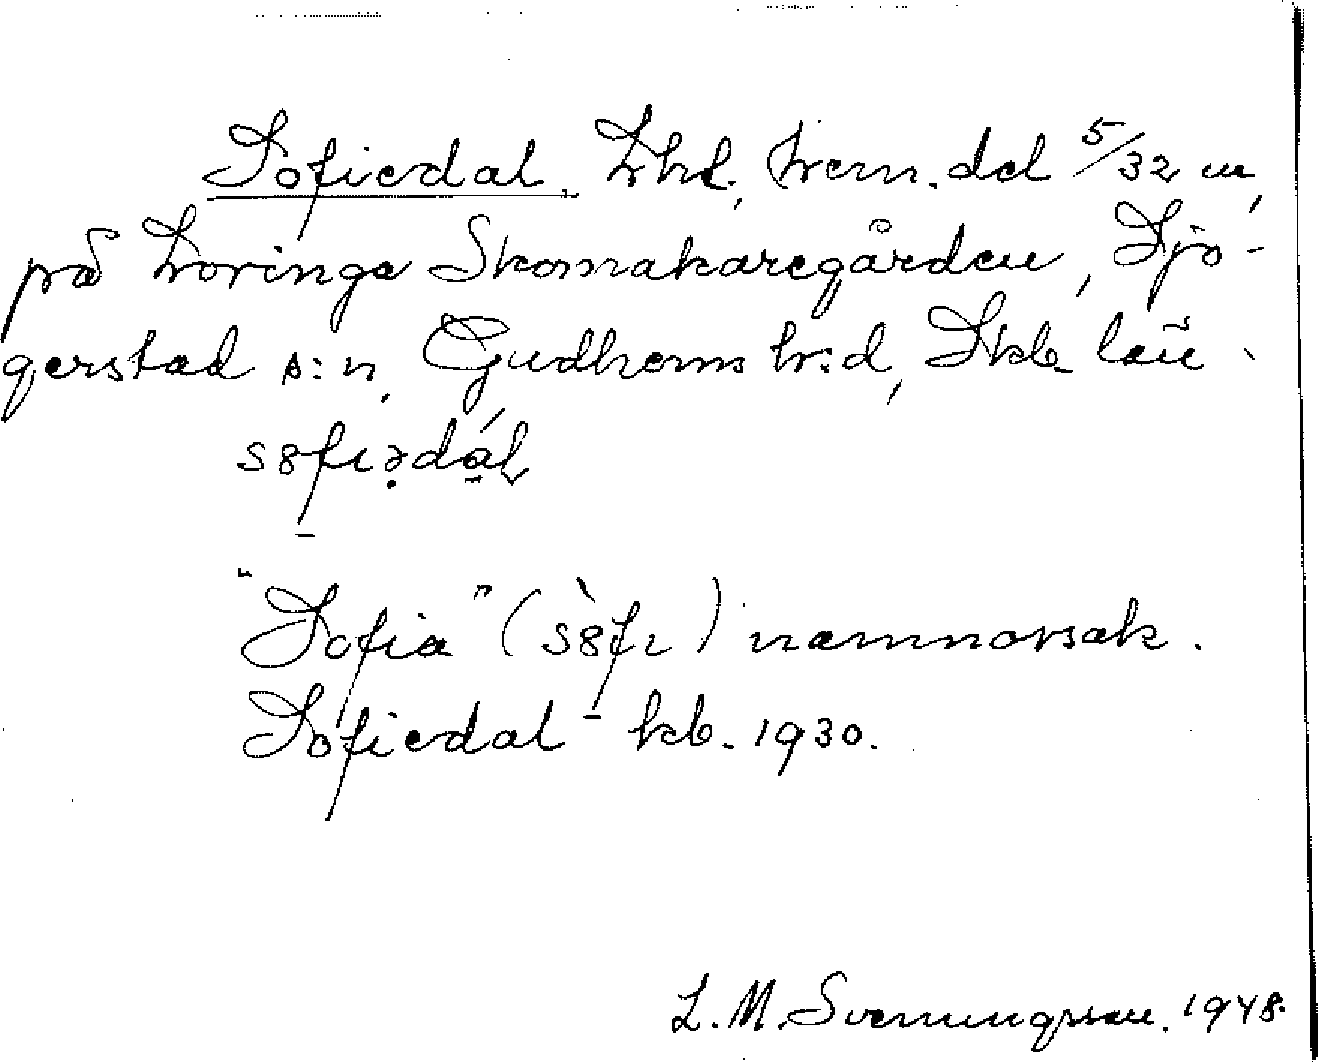 Sofiedal. Lht, hem. del 5/32 m,
på Loringa Skomakaregården, Sjo-
gerstad s:n, Gudhems h:d, Skb. län.
"Sofia" ( ) namnorsak.
Sofiedal kb. 1930.
L. M. Svenungsson. 1948.